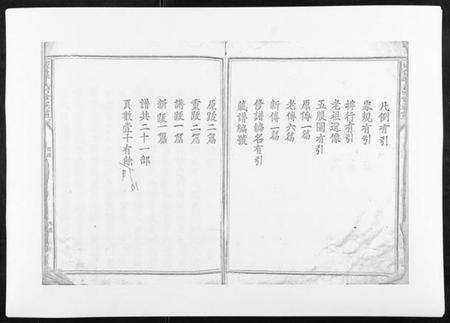 凡例有引
家規有引
排行有引
老祖遺像
五服圖有引
原傳一篇
老傳六篇
新傳一篇
修譜編名有引
藏譜編號
原跋二篇
重跋二篇
譜跋一篇
新跋一篇
譜共二十一部
頁數壹千有餘